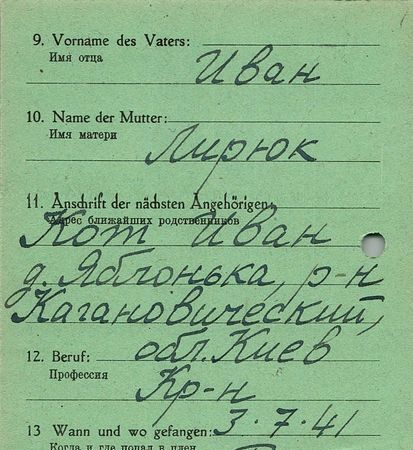 9. Vorname des Vaters:
Имя отца
Иван
10. Name der Mutter:
Имя матери
Лирюк
11. Anschrift der nächsten Angehörigen
Адрес ближайших родственников
Кот Иван
д. Яблонька, р-н
Кагановический,
обл. Киев
12. Beruf:
Профессия
Кр-н
13 Wann und wo gefangen: 3.7.41
Когда и где попал в плен